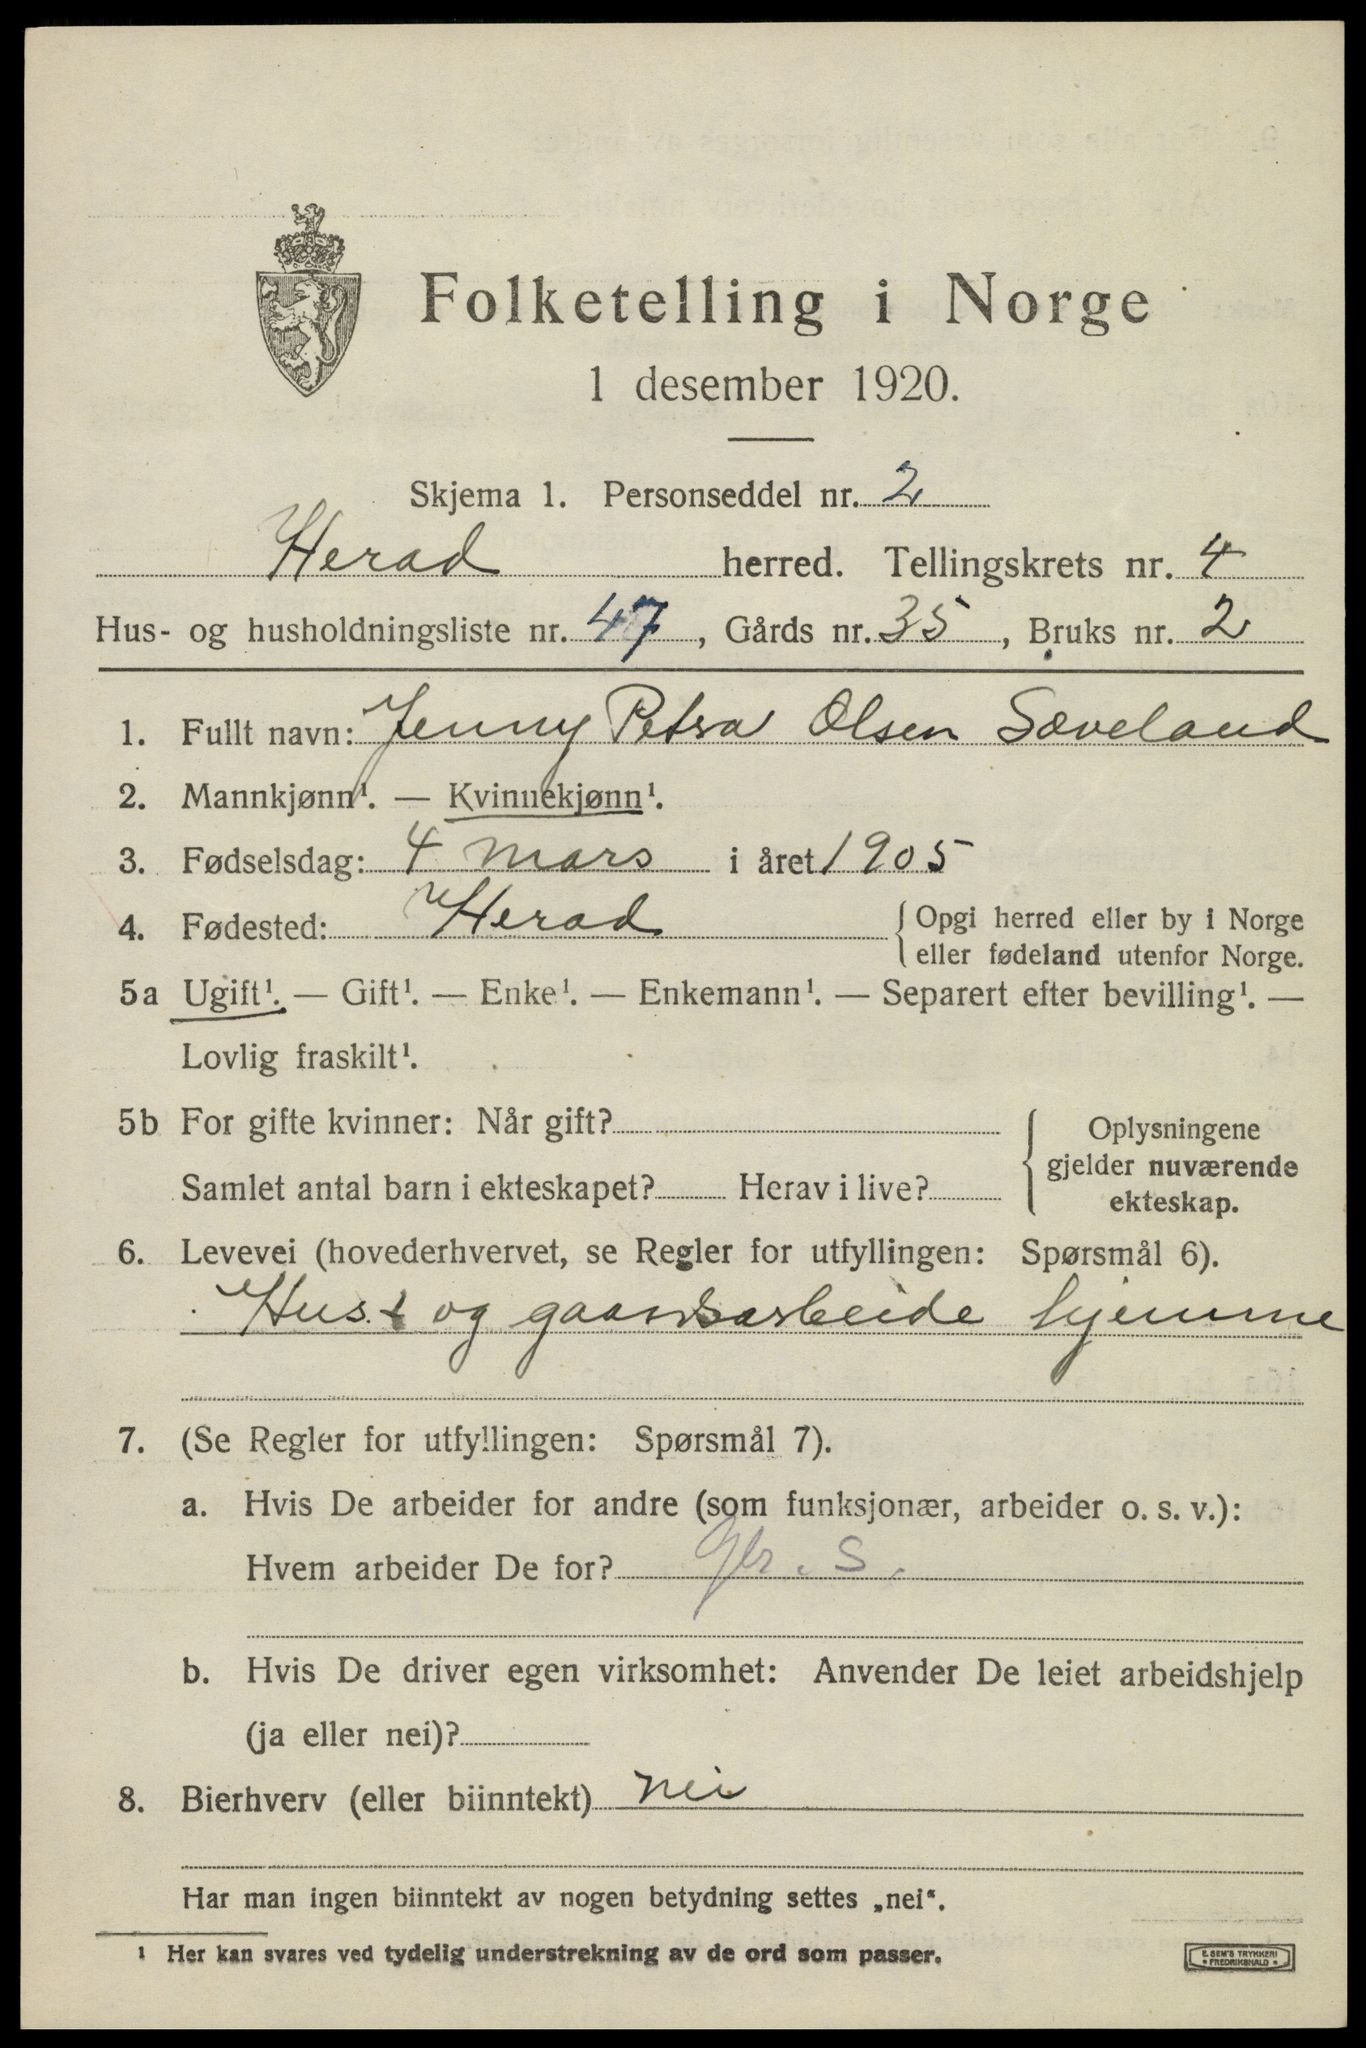 Folketelling i Norge
1 desember 1920.
Skjema 1. Personseddel nr. 2
Herad herred. Tellingskrets nr. 4
Hus- og husholdningsliste nr. 47, Gårds nr. 35, Bruks nr. 2
1. Fullt navn: Jenny Petra Olsen Sæveland
2. Mannkjønn¹. — Kvinnekjønn¹.
3. Fødselsdag: 4 mars i året 1905
4. Fødested: Herad { Opgi herred eller by i Norge
eller fødeland utenfor Norge.
5a Ugift¹. — Gift¹. — Enke¹. — Enkemann¹. — Separert efter bevilling¹. —
Lovlig fraskilt¹.
5b For gifte kvinner: Når gift?
Samlet antal barn i ekteskapet? Herav i live?
{ Oplysningene
gjelder nuværende
ekteskap.
6. Levevei (hovederhvervet, se Regler for utfyllingen: Spørsmål 6).
Hus- og gaardsarbeide hjemme
7. (Se Regler for utfyllingen: Spørsmål 7).
a. Hvis De arbeider for andre (som funksjonær, arbeider o. s. v.):
Hvem arbeider De for? S.
b. Hvis De driver egen virksomhet: Anvender De leiet arbeidshjelp
(ja eller nei)?
8. Bierhverv (eller biinntekt) nei
Har man ingen biinntekt av nogen betydning settes „nei“.
¹ Her kan svares ved tydelig understrekning av de ord som passer.
E. SEM'S TRYKKERI
• FREDRIKSHALD •